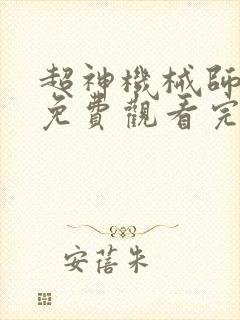 超神機械師
免費觀看完
安蓓朱